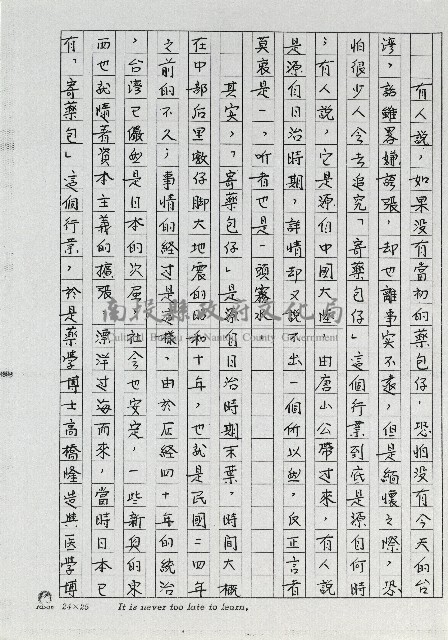 有人說，如果沒有當初的藥包仔，恐怕沒有今天的台
灣，話雖畧嫌誇張，却也離事实不遠，但是緬懷之際，恐
怕很少人会去追究「寄藥包仔」這個行業到底是源自何時
；有人說，它是源自中國大陸，由唐山公帶过來，有人說
是源自日治時期，詳情却又說不出一個所以然，反正言者
莫衷是一，听者也是一頭霧水。
其实，「寄藥包仔」是源自日治時期末葉，時間大概
在中部后里墩仔脚大地震的前十年，也就是民國二四年
之前的不久；事情的経过是這樣，由於庄経四十年的統治
，台灣已儼然是日本的次屬，社会也安定，一些新興的東
西也就隨着資本主義的擴張漂洋过海而來，當時日本已
有「寄藥包」這個行業，於是藥学博士高橋隆造與医学博
南投縣政府文化局
Cultural Bureau of Nantou County Government
24×25
It is never too late to learn.